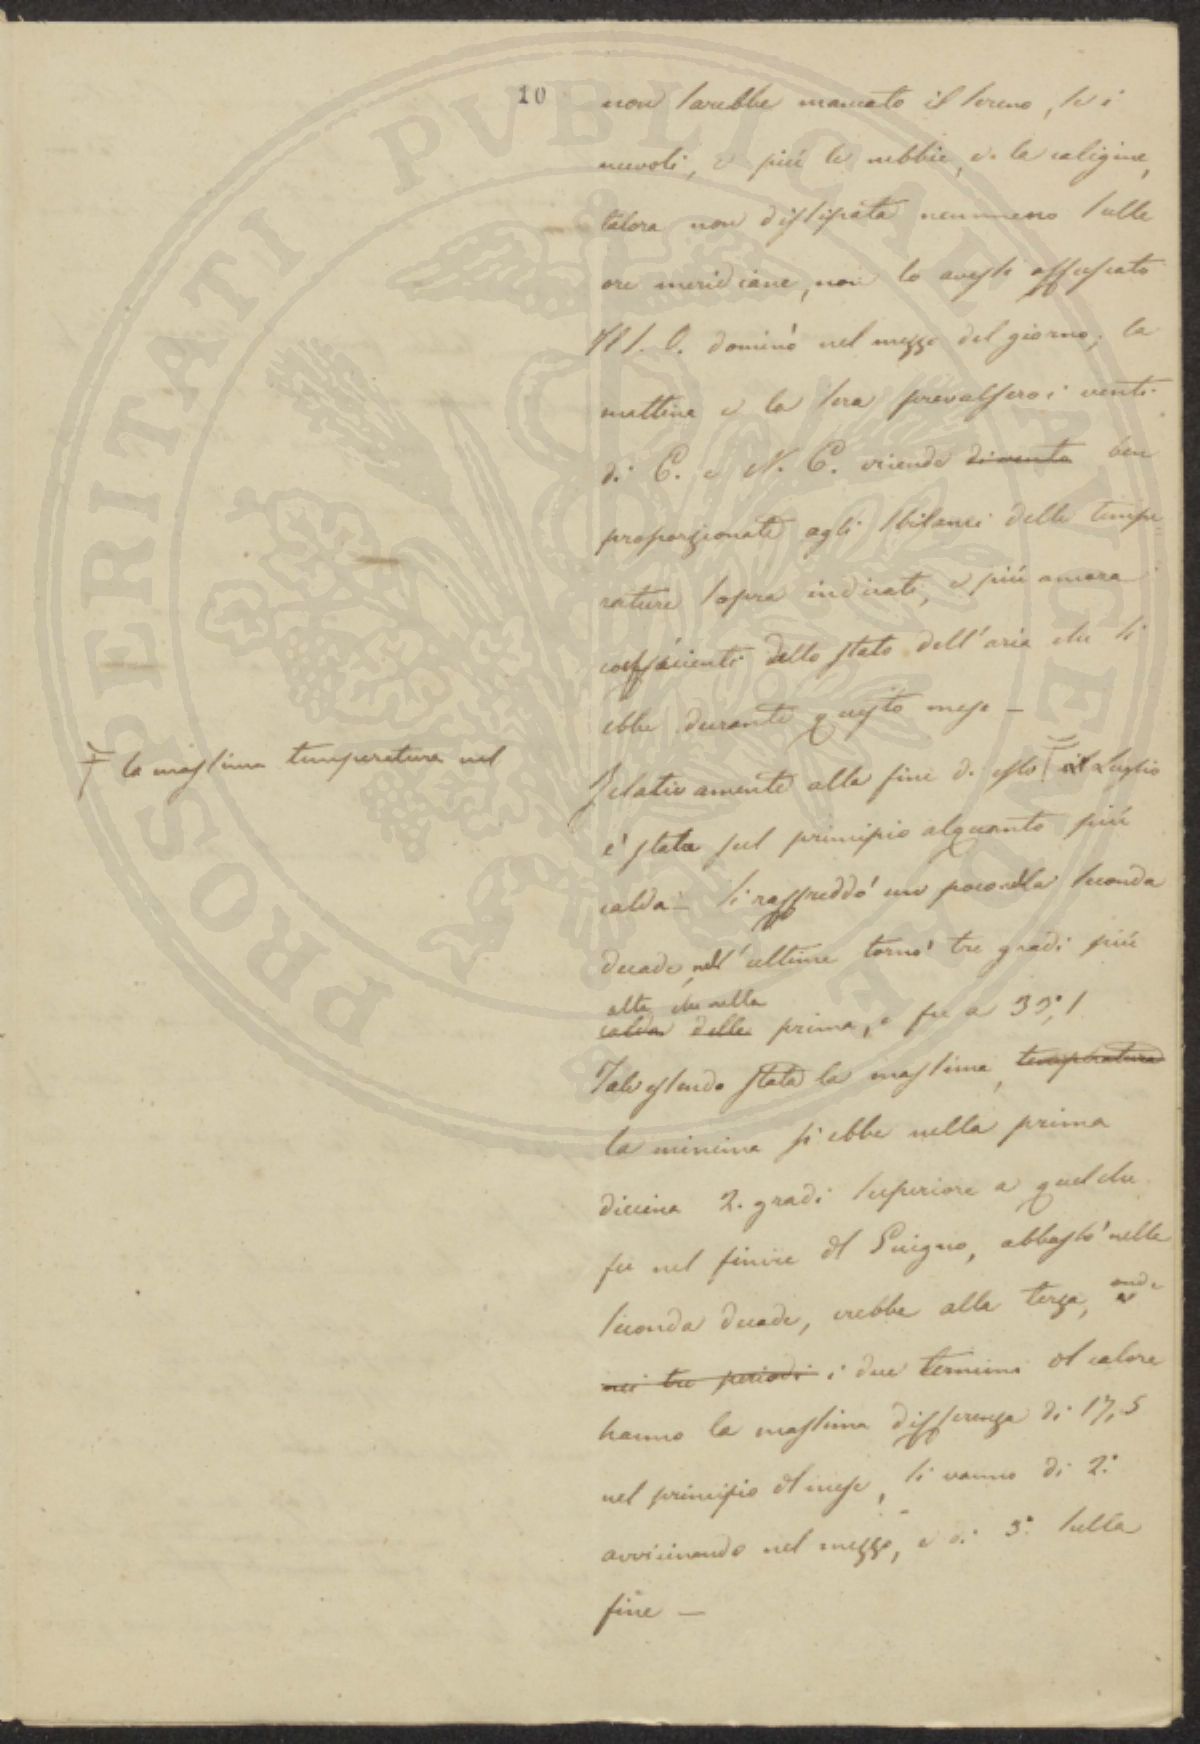 10
non sarebbe mancato il sereno, se i
nuvoli, e più le nebbie, e la caligine,
talora non dissipata nemmeno sulle
ore meridiane, non lo avessi offuscato
Il S. O. dominò nel mezzo del giorno; la
mattina e la sera prevalsero i venti
di E. e N. E. vicende di vento ben
proporzionate agli sbilanci delle tempe
rature sopra indicati, e più ancora
coefficienti dello stato dell'aria che si
ebbe durante questo mese —
Ŧ la massima temperatura nel
Relativamente alla fine di esso Ŧ il Luglio
è stata sul principio alquanto più
calda — si raffreddò un poco nella seconda
decade, nell'ultima tornò tre gradi più
alta che nella
calda della prima, e fu a 33°,1
Tale essendo stata la massima, temperatura
la minima si ebbe nella prima
diecina 2. gradi superiore a quel che
fu nel finire del Giugno, abbassò nella
seconda decade, crebbe alla terza, onde
nei tre periodi i due termini del calore
hanno la massima differenza di 17,5
nel principio del mese, si vanno di 2.°
avvicinando nel mezzo, e di 3.° sulla
fine —
PROSPERITATI PVBLICAE AVGENDAE